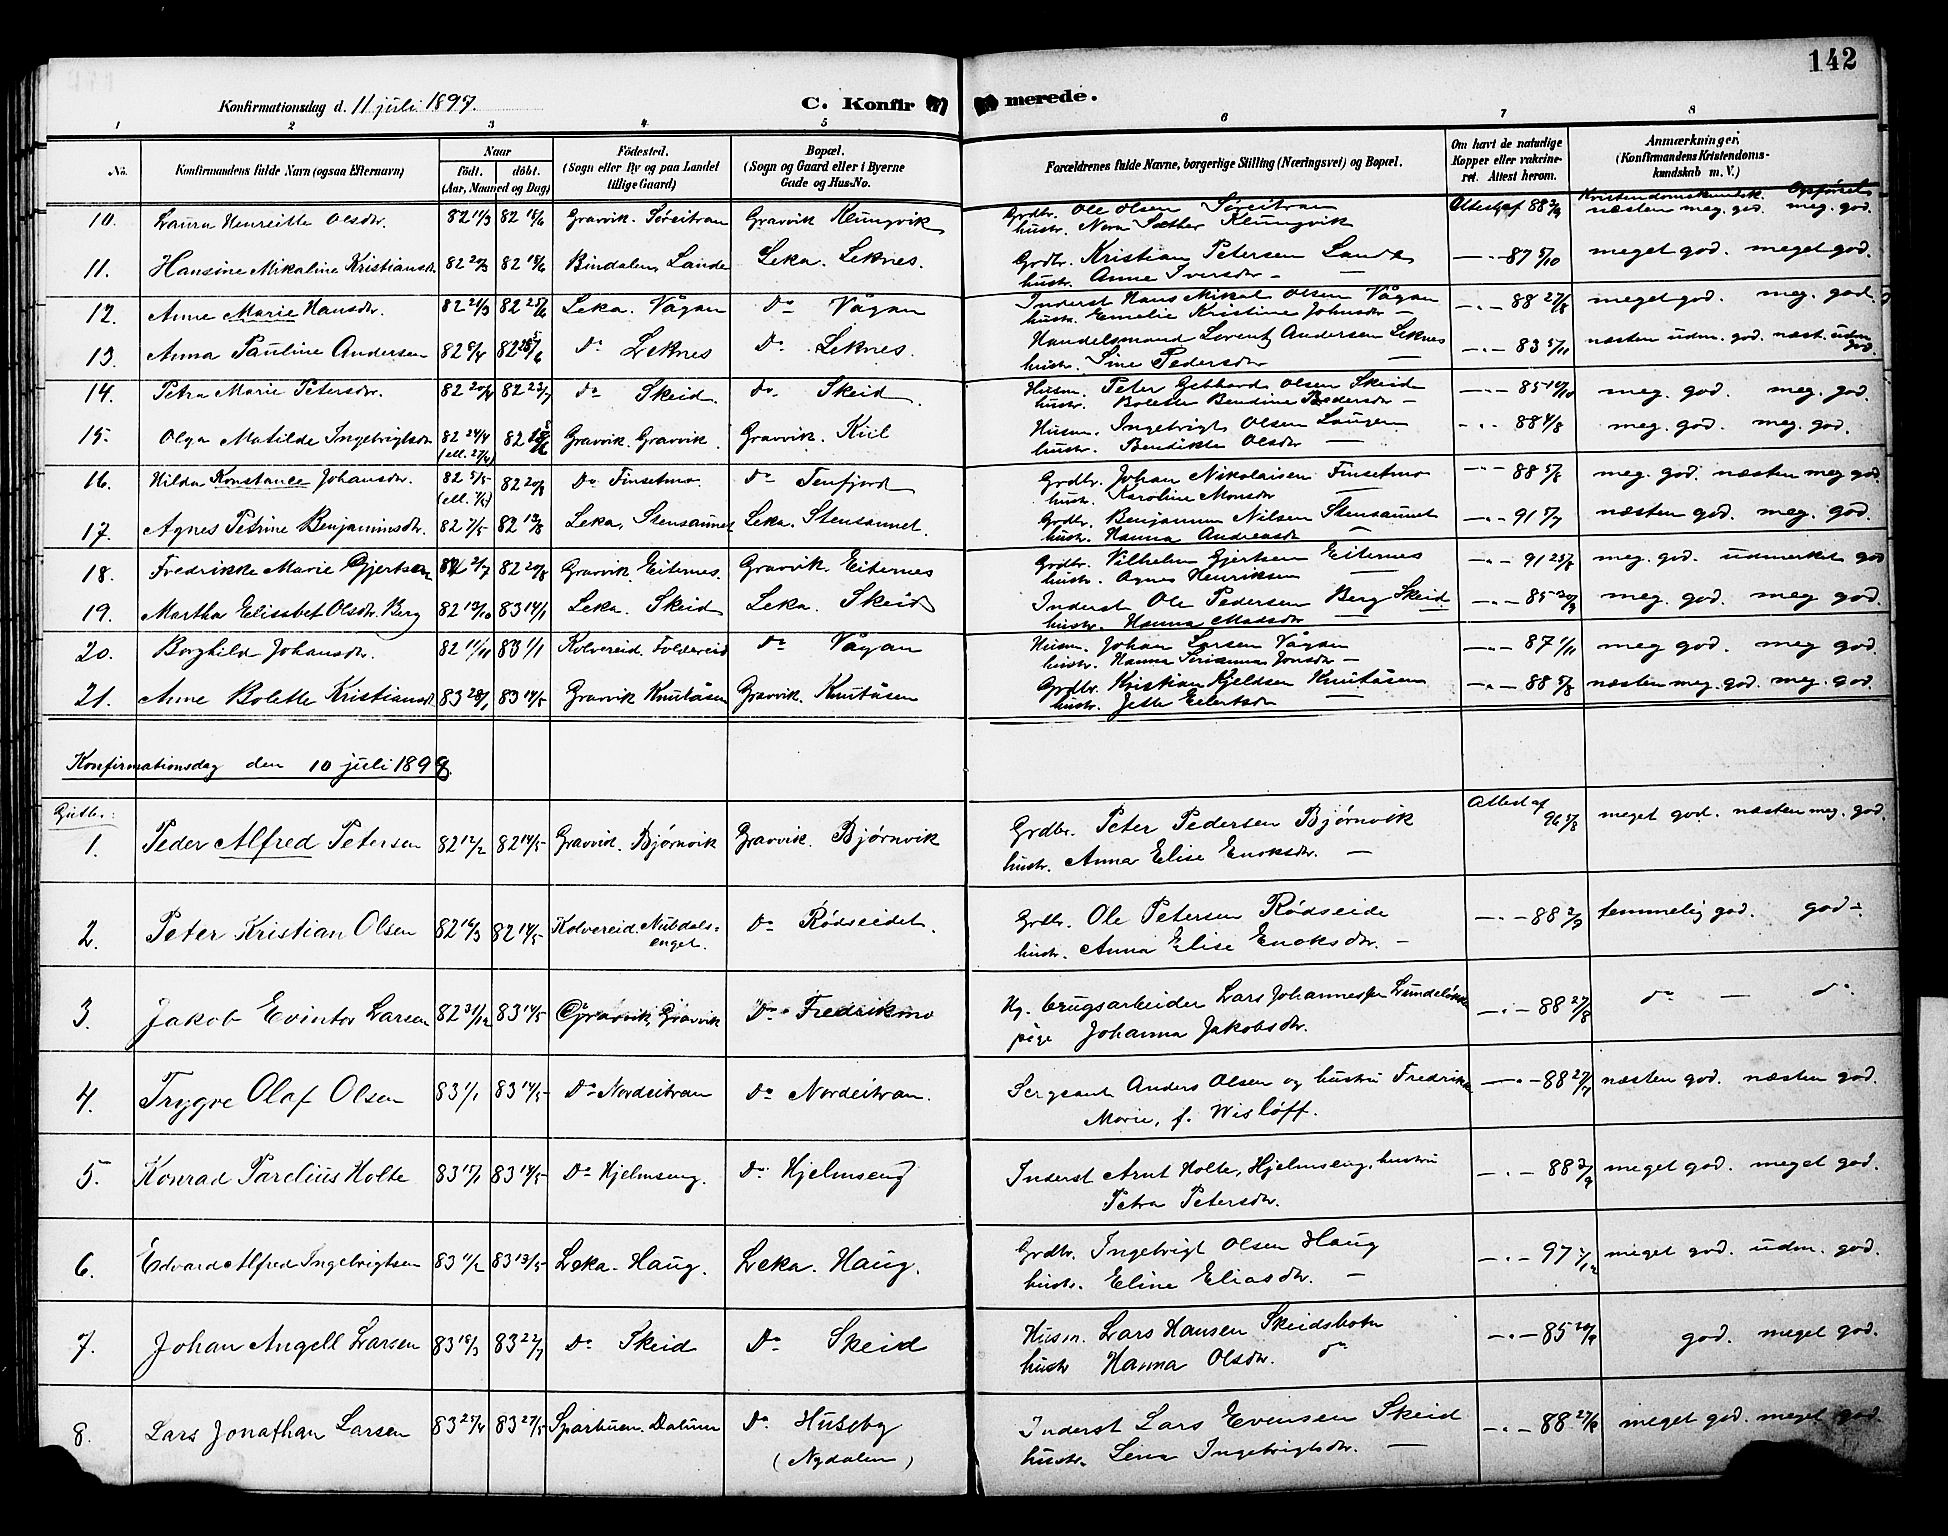 142
Konfirmationsdag d. 11 juli 1897.
C. Konfirmerede.
1 2 3 4 5 6 7 8
No. Konfirmandens fulde Navn (ogsaa Efternavn) Naar født. døbt. (Aar, Maaned og Dag) Fødested. (Sogn eller By og paa Landet tillige Gaard) Bopæl. (Sogn og Gaard eller i Byerne Gade og Hus-No. Forældrenes fulde Navne, borgerlige Stilling (Næringsvei) og Bopæl. Om havt de naturlige Kopper eller vakcineret. Attest herom. Anmærkninger. (Konfirmandens Kristendomskundskab m. V.)
Kristendomskundsk. Opførsel
10. Laura Henreitte Olsdtr. 82 11/3 82 18/6 Gravvik. Søreitran Gravvik Klungvik Grdbr. Ole Olsen Søreitran Attest af 88 2/9 næsten meg. god. meg. god.
hustr. Nora Sæther Klungvik
11. Hansine Mikaline Kristiansdr. 82 20/3 82 18/6 Bindalen, Lande Leka. Leknes. Grdbr. Kristian Petersen Lande — 87 5/10 meget god. meget god.
hustr. Anne Iversdr. —
12. Anne Marie Hansdr. 82 21/3 82 25/6 Leka. Vågan Do Vågan Inderst Hans Mikal Olsen Vågan — 88 27/8 meget god. meg. god.
hustr. Emelie Kristine Johnsdr —
13. Anna Pauline Andersen 82 8/4 Do Leknes Do. Leknes. Handelsmand Lorentz Andersen Leknes — 83 5/11 næsten udm. god. næst. udm. god.
hustr. Sine Pedersdr —
14. Petra Marie Petersdr. 82 20/4 82 23/7 Do Skeid. Do. Skeid. Husm. Peter Gebhard Olsen Skeid — 85 10/10 meg. god. meg. god.
hustr. Bolette Bendine Pedersdr —
15. Olga Matilde Ingebrigtsdr 82 24/4 (ell. 27/4) Gravvik. Gravvik. Gravvik. Kiil Husm. Ingebrigt Olsen Laugen — 88 4/8 meg. god. meg. god.
hustr. Bendikte Olsdr —
16. Hilda Konstance Johansdr. 82 5/5 (ell. 7/5) 82 20/8 Do Finsetmo. Do Tenfjord Grdbr. Johan Nikolaisen Finsetmo — 88 5/8 meg. god. næsten meg god
hustr. Karoline Monsdr —
17. Agnes Petrine Benjaminsdtr. 82 7/5 82 13/8 Leka, Stensaunet Leka. Stensaunet. Grdbr. Benjamin Nilsen Stensaunet — 91 7/7 næsten god. meg. god.
hustr. Hanna Andreasdr —
18. Fredrikke Marie Gjertsen 82 21/7 82 20/8 Gravvik. Eiternes. Gravvik. Eiternes Grdbr. Vilhelm Gjertsen Eiternes — 91 25/8 meg. god. udmerket god
hustr. Agnes Henriksen —
19. Martha Elisabet Olsdr. Berg 82 13/10 83 14/1 Leka. Skeid Leka. Skeid Inderst Ole Pedersen Berg Skeid — 85 20/9 meg. god. meg god.
hustr. Hanna Matsdr —
20. Borghild Johansdr. 82 11/11 83 1/1 Kolvereid. Foldereid Do Vågan Husm. Johan Larsen Vågan — 87 1/11 meg god. meg god.
hustr. Hanna Sirianna Jonsdr —
21. Anne Bolette Kristiansdr 83 28/1 83 14/5 Gravvik Knutåsen Gravvik. Knutåsen Grdbr. Kristian Kjeldsen Knutåsen — 88 5/8 næsten meg. god. meg. god.
hustr. Jette Eilertsdr —
Konfirmationsdag den 10 juli 1898
Gutter:
1. Peder Alfred Petersen 82 12/2 82 14/5 Gravvik. Bjørnvik Gravvik. Bjørnvik Grdbr. Peter Pedersen Bjørnvik Attest af 96 5/8 meget god. næsten meg. god.
hustr. Anna Elise Enoksdtr. —
2. Peter Kristian Olsen 82 16/3 82 14/5 Kolvereid. Nubdalsenget. Do Rødseidet. Grdbr. Ole Petersen Rødseide — 88 2/9 temmelig god. god.
hustr. Anna Elise Enoksdtr. —
3. Jakob Evinton Larsen 82 31/12 83 14/5 Gravvik, Gravvik Do. Fredriksmo Ug. brugsarbeider Lars Johannesen — 88 27/8 do — do.
pige Johanna Jakobsdtr.
4. Trygve Olaf Olsen 83 1/1 83 14/5 Do Nordeitran Do Nordeitran. Sergeant Anders Olsen og hustru Fredrikke — 88 27/7 næsten god. næsten god.
Marie, f. Wisløff.
5. Konrad Parelius Holte 83 15/1 83 14/5 Do Hjelmseng. Do. Hjelmseng Inderst Arnt Holte, Hjelmseng, hustru — 88 2/9 meget god. meget god.
Petra Petersdtr.
6. Edvard Alfred Ingebrigtsen 83 11/2 83 13/5 Leka. Haug. Leka. Haug. Grdbr. Ingebrigt Olsen Haug — 97 7/12 meget god. udm. god.
hustr. Eline Eliasdtr. —
7. Johan Angell Larsen 83 18/3 83 22/7 Do Skeid Do. Skeid Husm. Lars Hansen Skeidsholm — 85 20/9 god. meget god.
hustr Hanna Olsdtr. do
8. Lars Jonathan Larsen 83 25/4 83 27/5 Sparbuen. Dalum Do. Huseby Inderst Lars Evensen Skeid — 88 27/8 meget god. meget god.
(Nydalen) hustr. Lena Ingebrigtsdtr. —